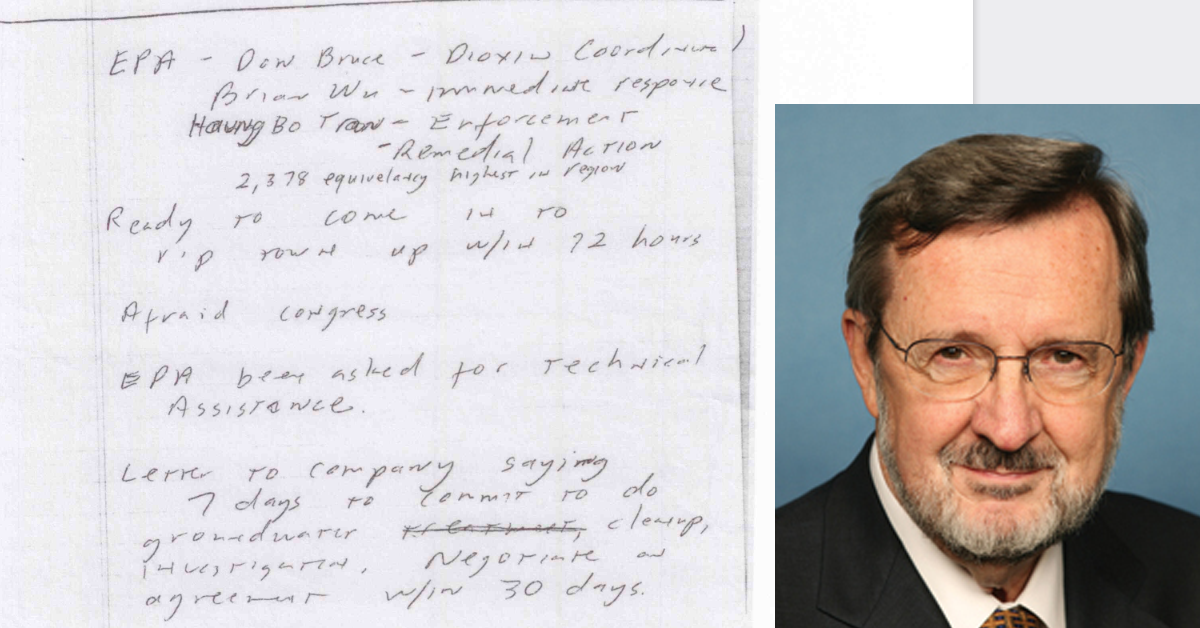 EPA - Don Bruce - Dioxin Coordinator
Brian Wu - immediate response
Haung Bo Tran - Enforcement
- Remedial Action
2,378 equivelancy highest in region
Ready to come in to
rip town up w/in 72 hours
Afraid congress
EPA been asked for Technical
Assistance.
Letter to company saying
7 days to commit to do
groundwater treatment, cleanup,
investigation. Negotiate an
agreement w/in 30 days.